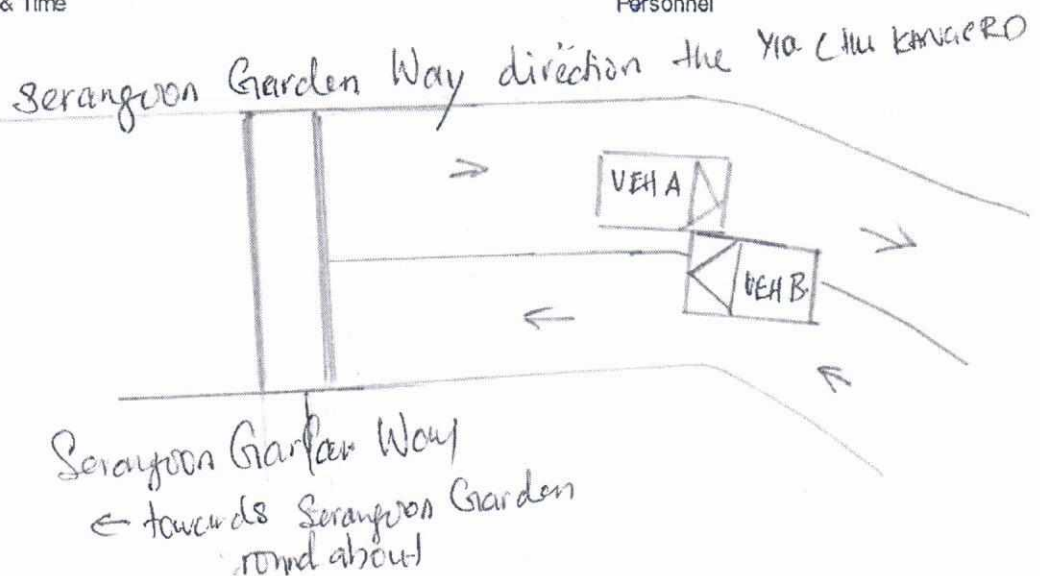 & Time
Personnel
Serangoon Garden Way direction the Yio Chu KANG RD
VEH A
VEH B
Serangoon Garden Way
← towards Serangoon Garden
round about